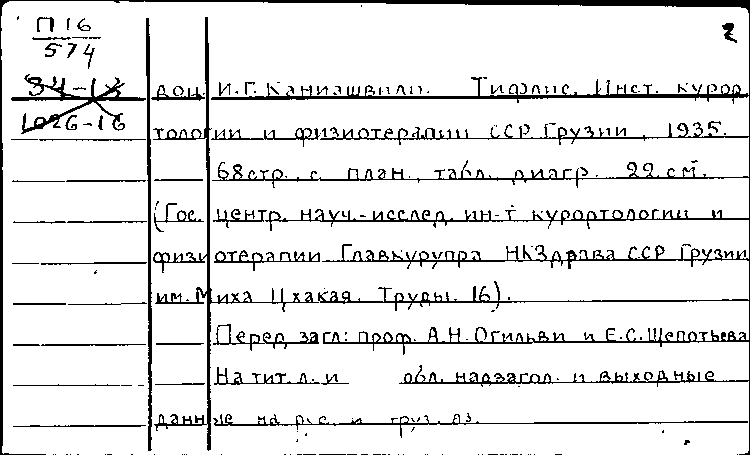 П16
574
2
34-13
1026-16
доц. И.Г. Каниашвили. Тифлис, Инст. курор
тологии и физиотерапии ССР Грузии, 1935.
68стр. с план., табл. диагр. 22 см.
(Гос. центр. науч.-исслед. ин-т курортологии и
физиотерапии Главкурупра НКЗдрава ССР Грузии
им. Миха Цхакая. Труды. 16).
Перед загл: проф. А.Н. Огильви и Е.С. Щепотьева
На тит. л. и обл. надзагол. и выходные
данные на рус. и груз. яз.